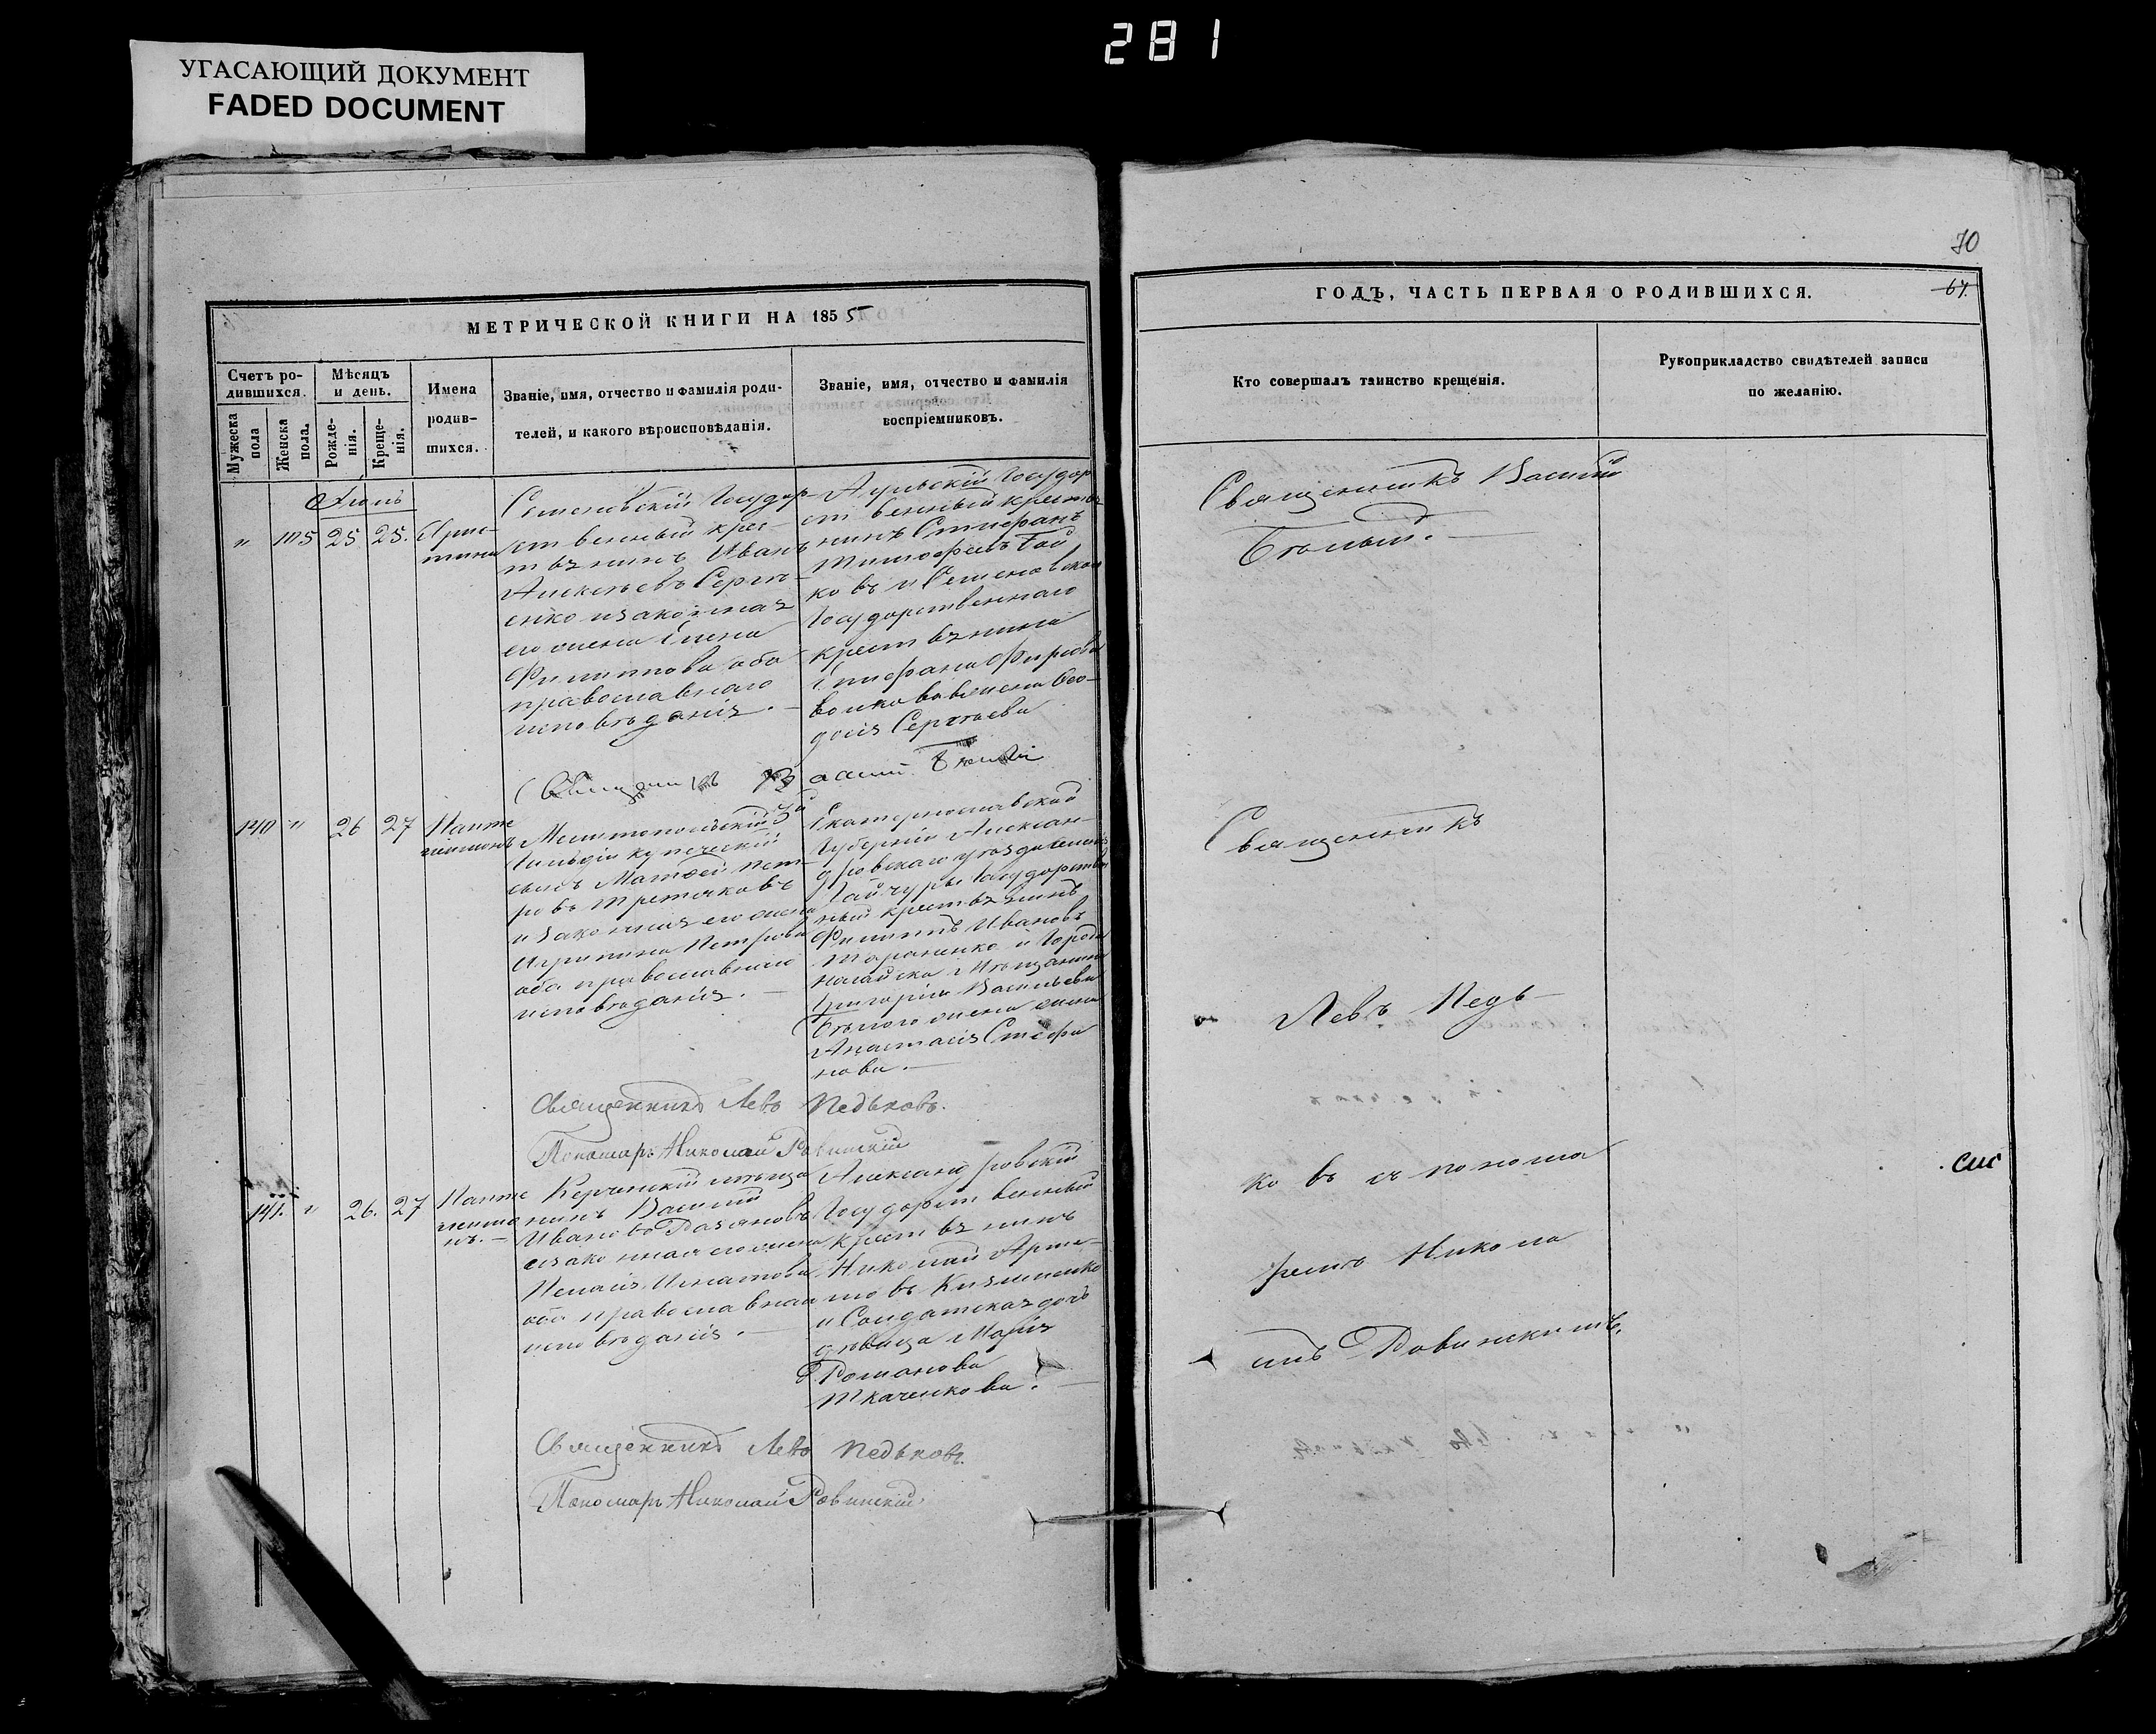 281
УГАСАЮЩИЙ ДОКУМЕНТ
FADED DOCUMENT
МЕТРИЧЕСКОЙ КНИГИ НА 1855
Счетъ ро-
дившихся.
Мужеска
пола
Женска
пола.
Мѣсяцъ
и день.
Рожде-
нія.
Креще-
нія.
Имена
родив-
шихся.
Званіе, имя, отчество и фамилія роди-
телей, и какого вѣроисповѣданія.
Званіе, имя, отчество и фамилія
воспріемниковъ.
Іюль
" 115 25 25.
Семеновскій Государ-
ственный крес-
тьянинъ Иванъ
Алексѣевъ Серги-
енко изаконная
его жена Елена
Филиппова оба
православнаго
исповѣданія. —
Государ
ственный крестья
нинъ Стефанъ
Тимофеевъ Гай
ковъ и Семеновскаго
Государственнаго
крестьянина
жена Ѳео-
досія Сергѣева
Василій Бѣлый
140 " 26 27 Панте
леимонъ
Мелитопольскій 3й
Гильдіи купеческій
сынъ Матѳей Пет-
ровъ Третяковъ
изаконная его жена
Агрипина Петрова
оба православнаго
исповѣданія. —
Екатеринославской
Губерніи Алексан-
дровскаго уѣзда селенія
Гайчуры Государствен
ный крестьянинъ
Филиппъ Ивановъ
Тараненко и Города
Ногайска Мѣщанина
Григорія Васильева
Бѣлого жена
Анастасія Стефа
нова. —
Священникъ Левъ Педьковъ.
Пономарь Николай Ровинскій
141. " 26. 27 Панте
леимо
нъ. —
Керченскій мѣща
нинъ Василій
Ивановъ
изаконная его жена
Пелагія Игнатова
оба православнаго
исповѣданія. —
Александровскій
Государственный
крестьянинъ
Николай Арте-
мовъ Кизименко
и Солдатская дочь
дѣвица Марія
Романова
Ткаченкова. —
Священникъ Левъ Педьковъ.
Пономарь Николай Ровинскій.
70
67.
ГОДЪ, ЧАСТЬ ПЕРВАЯ О РОДИВШИХСЯ.
Кто совершалъ таинство крещенія.
Рукоприкладство свидѣтелей записи
по желанію.
Священникъ Василій
Бѣлый. —
Священникъ
Левъ Педь-
ковъ съ понома
ремъ Никола
емъ Ровинскимъ.